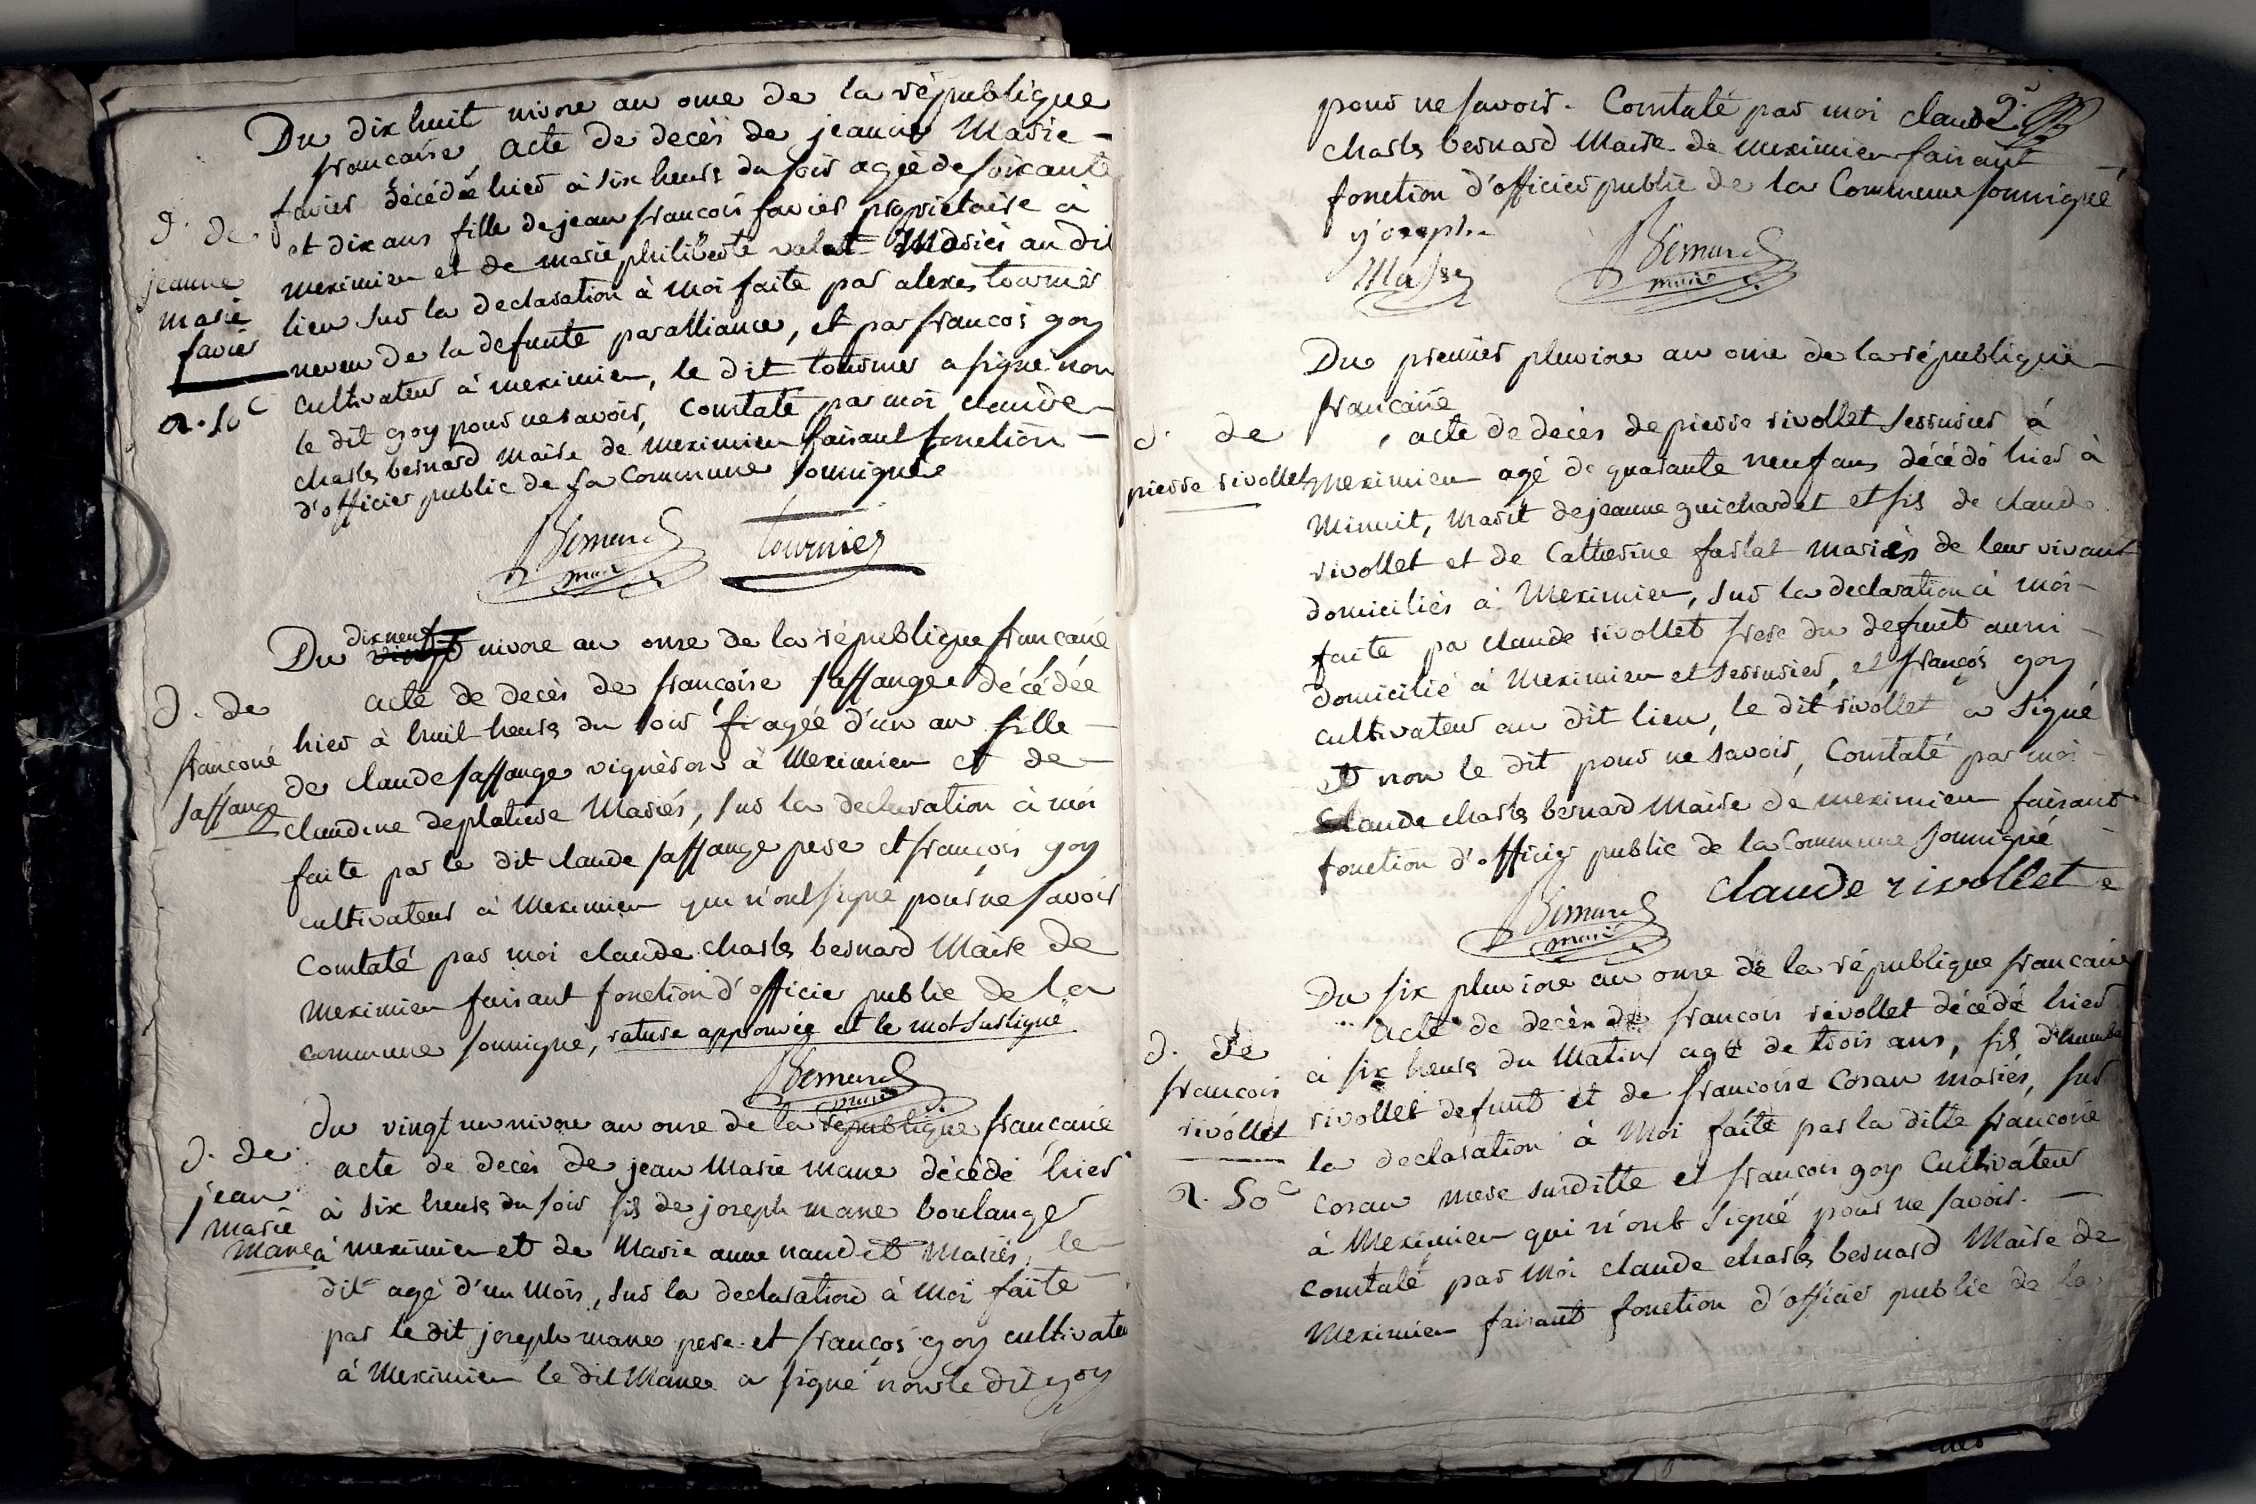 Du dix huit nivose an onse de la république
francaise, acte de decès de jeanne Marie
favier décédée hier à six heures du soir agée de soixante
et dix ans fille de jean francois favier propriétaire à
meximieu et de marie philiberte valet Mariés au dit
lieu sur la declaration à moi faite par alexes tournier
neveu de la defunte par alliance, et par francois goy
cultivateur à meximieu, le dit tournier a signé non
le dit goy pour ne savoir, Constaté par moi claude
charles bernard maire de meximieu faisant fonction
d'officier public de la Commune soussigné
d. de
jeanne
marie
favier
Bernard
maire
tournier
Du dix neuf nivose an onse de la république francaise
acte de decès de françoise saffange décédée
hier à huit heures du soir agée d'un an fille
de claude saffange vigneron à Meximieu et de
claudine deplatiere Mariés, sur la declaration à moi
faite par le dit claude saffange pere et francois goy
cultivateur à Meximieu qui n'ont signé pour ne savoir
Constaté par moi claude charles bernard Maire de
Meximieu faisant fonction d'officier public de la
commune soussigné, rature approuvée et le mot surligné
d. de
francoise
saffange
Bernard
maire
Du vingt un nivose an onse de la république francaise
acte de decès de jean Marie mane décédé hier
à six heures du soir fils de joseph mane boulanger
à meximieu et de Marie anne naudet Mariés, le
dit agé d'un mois, sur la declaration à moi faite
par le dit joseph mane pere et françois goy cultivateur
à Meximieu le dit Mane a signé non le dit goy
d. de
jean
marie
mane
pour ne savoir. Constaté par moi claude
charles bernard Maire de meximieu faisant
fonction d'officier public de la Commune soussigné
joseph
Bernard
maire
Du premier pluviose an onse de la république
francaise
, acte de decès de pierre rivollet serrurier à
Meximieu agé de quarante neuf ans décédé hier à
Minuit, marit de jeanne guichardet et fils de claude
rivollet et de Catherine farlat mariés de leur vivant
domiciliés à Meximieu, sur la declaration à moi
faite pa claude rivollet frere du defunt aussi
domicilié à Meximieu et serrurier, et françois goy
cultivateur au dit lieu, le dit rivollet a signé
et non le dit pour ne savoir, Constaté par moi
Claude charles bernard Maire de meximieu faisant
fonction d'officier public de la Commune soussigné
d. de
pierre rivollet
Bernard
maire
claude rivollet
Du six pluviose an onse de la république francaise
acte de decès de francois rivollet décédé hier
à six heures du Matin agé de trois ans, fils d'humbe
rivollet defunt et de francoise Cosan mariés, sur
la declaration à Moi faite par la ditte francoise
Cosan mere surditte et francois goy Cultivateur
à Meximieu qui n'ont signé pour ne savoir.
Constaté par moi claude charles bernard Maire de
Meximieu faisant fonction d'officier public de la
d. de
francois
rivollet